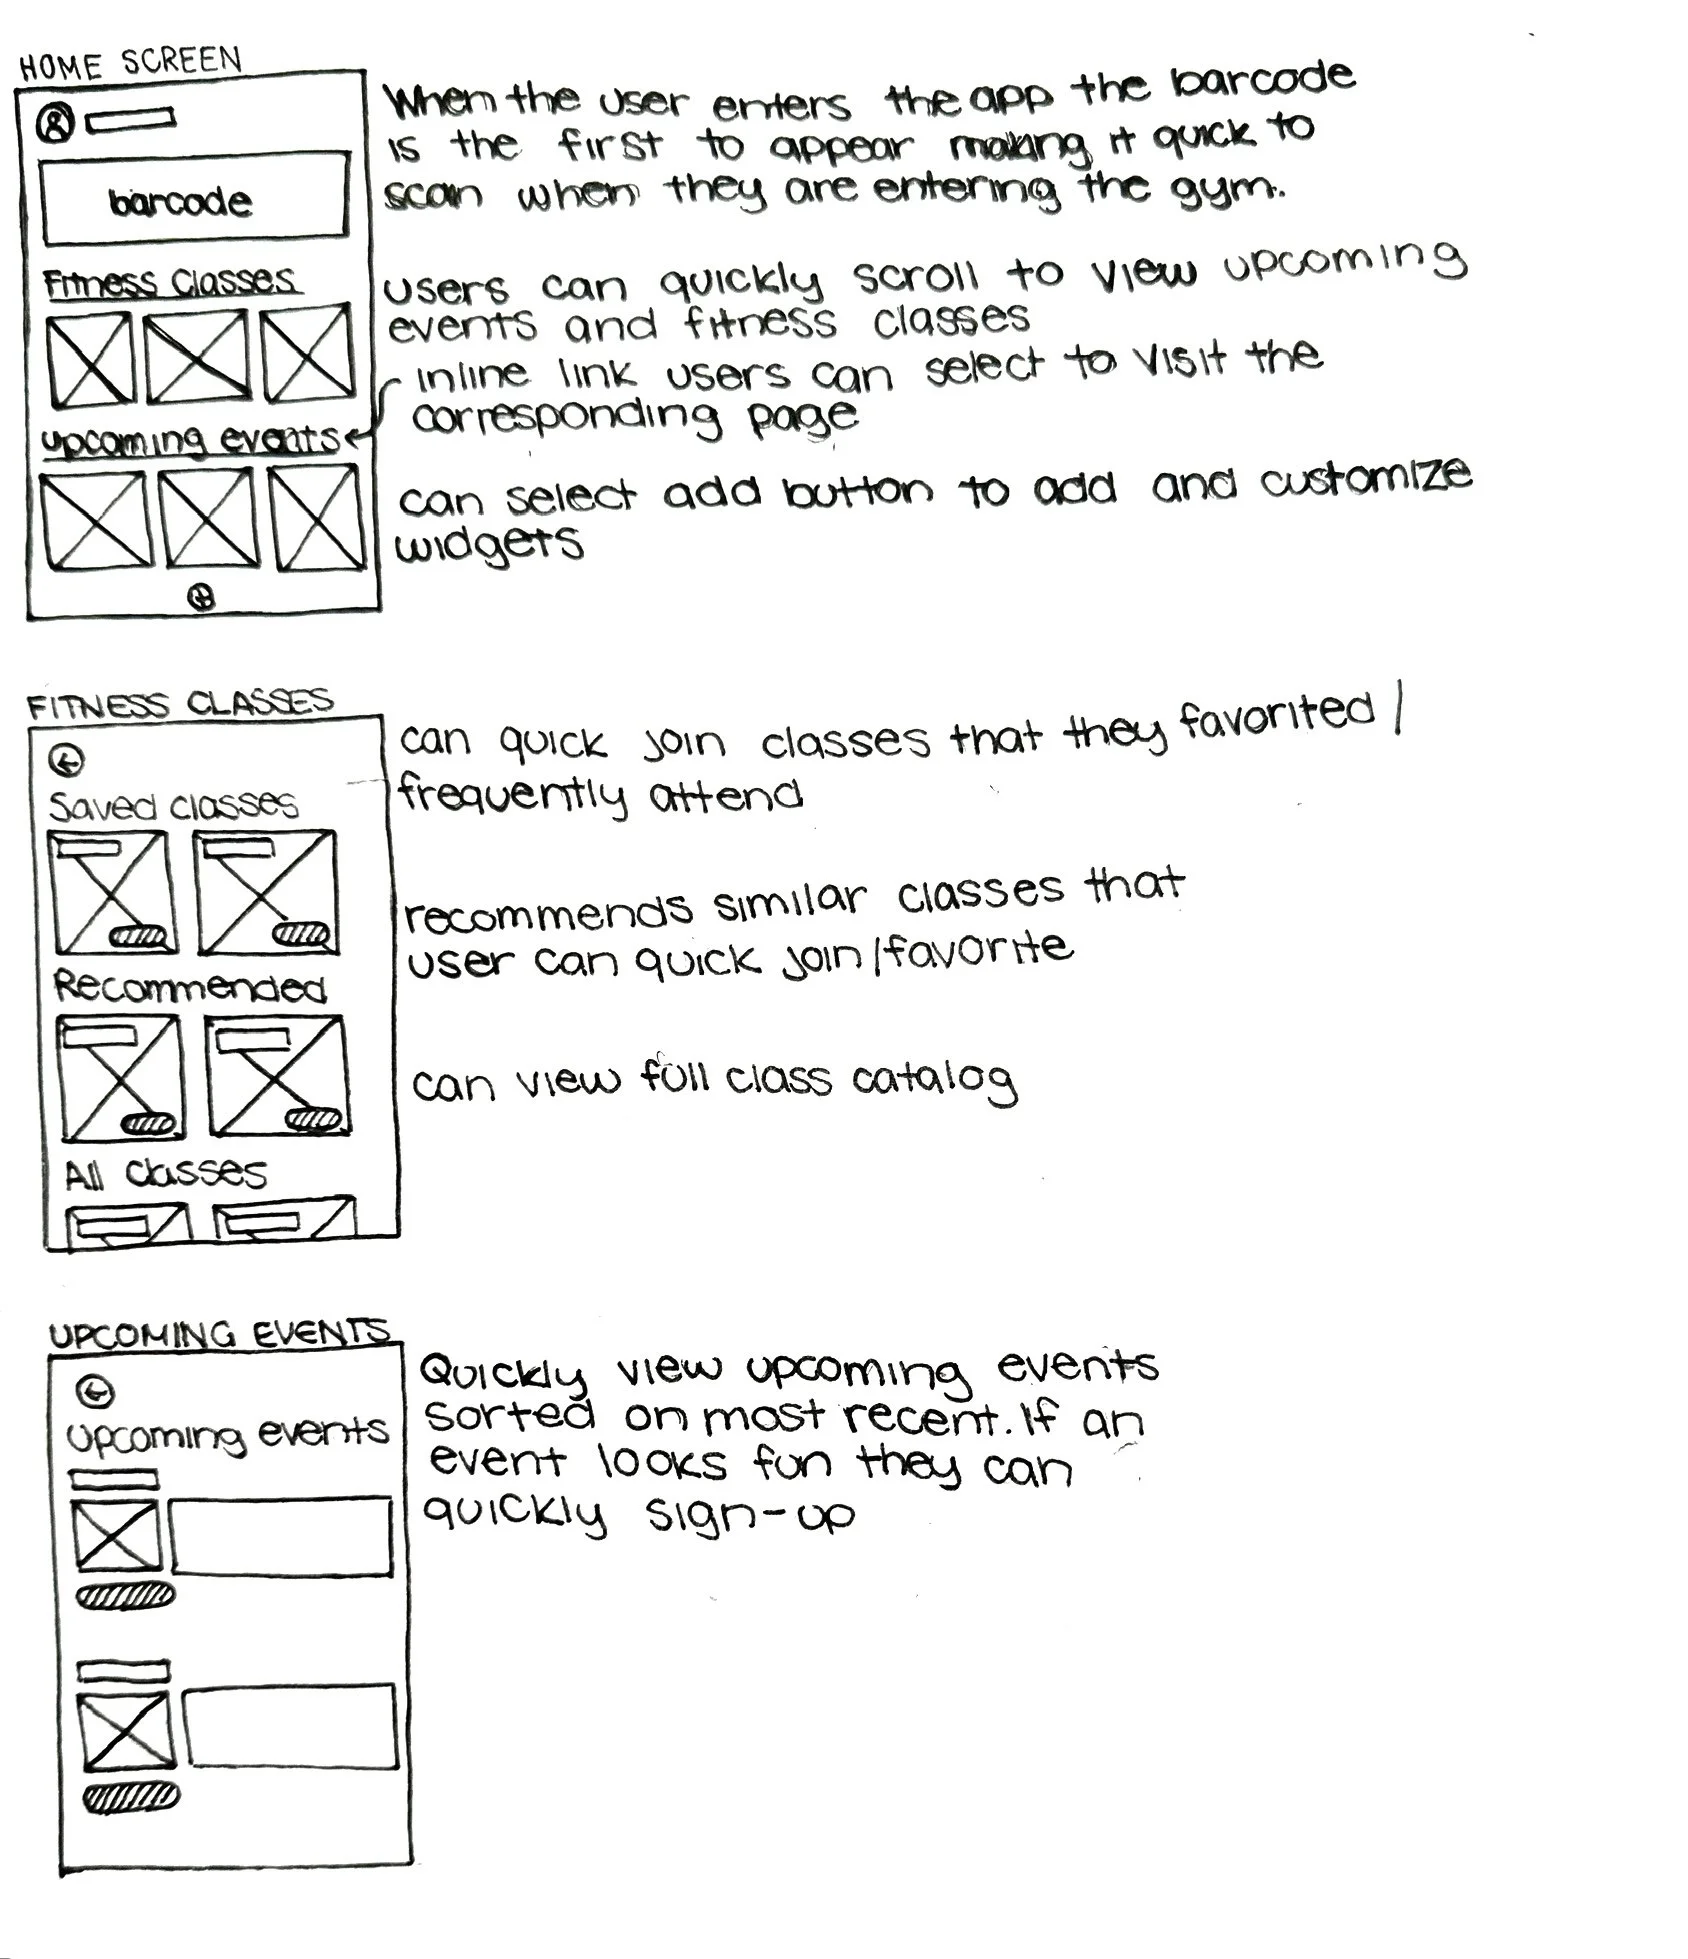 HOME SCREEN
When the user enters the app the barcode
is the first to appear making it quick to
scan when they are entering the gym.
barcode
Fitness Classes
users can quickly scroll to view upcoming
events and fitness classes
inline link users can select to visit the
corresponding page
upcoming events
can select add button to add and customize
widgets
FITNESS CLASSES
can quick join classes that they favorited /
frequently attend
Saved classes
recommends similar classes that
user can quick join/favorite
Recommended
can view full class catalog
All classes
UPCOMING EVENTS
Quickly view upcoming events
sorted on most recent. If an
event looks fun they can
quickly sign-up
Upcoming events